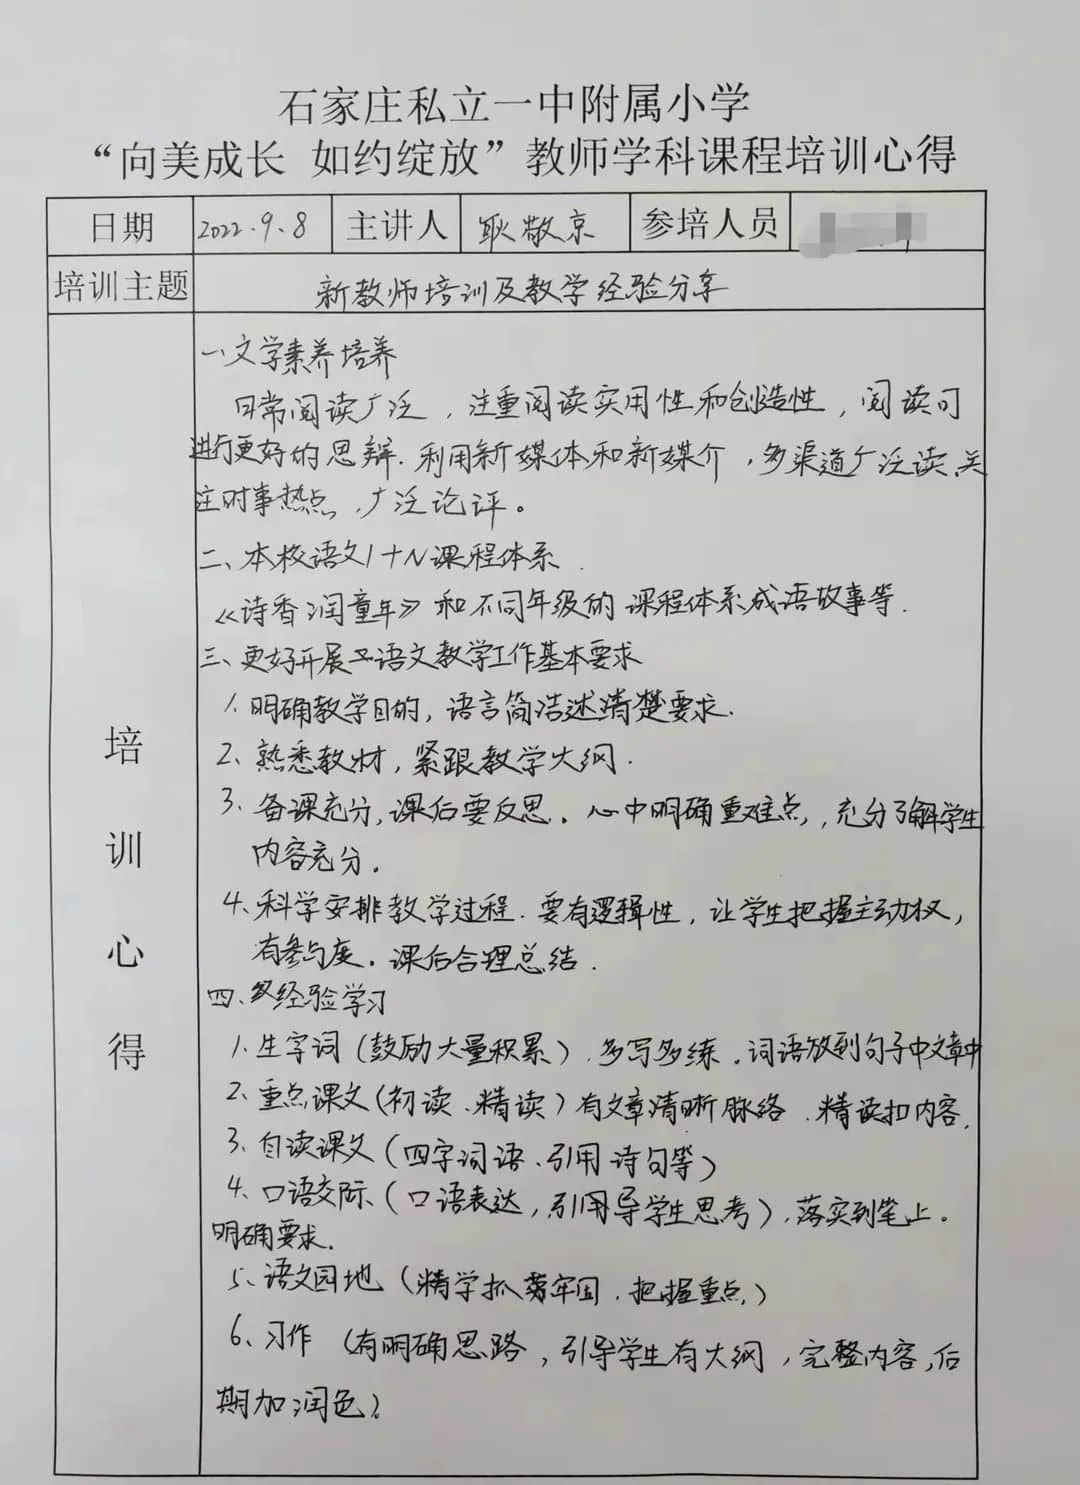 石家庄私立一中附属小学
“向美成长 如约绽放”教师学科课程培训心得
日期 2022.9.8 主讲人 耿敬京 参培人员
培训主题 新教师培训及教学经验分享
培训心得
一、文学素养培养
日常阅读广泛，注重阅读实用性和创造性，阅读可
进行更好的思辩.利用新媒体和新媒介，多渠道广泛读、关
注时事热点，广泛论评。
二、本校语文1+N课程体系.
《诗香润童年》和不同年级的课程体系成语故事等.
三、更好开展语文教学工作基本要求
1.明确教学目的，语言简洁述清楚要求.
2、熟悉教材，紧跟教学大纲.
3、备课充分，课后要反思。心中明确重难点，充分了解学生
内容充分。
4、科学安排教学过程.要有逻辑性，让学生把握主动权，
有参与度。课后合理总结.
四、经验学习
1.生字词（鼓励大量积累）.多写多练.词语放到句子中文章中
2、重点课文（初读、精读）有文章清晰脉络.精读扣内容.
3、自读课文（四字词语、引用诗句等）
4、口语交际（口语表达，引用导学生思考），落实到笔上。
明确要求.
5、语文园地（精学抓牢固.把握重点）
6、习作（有明确思路，引导学生有大纲，完整内容，后
期加润色）。